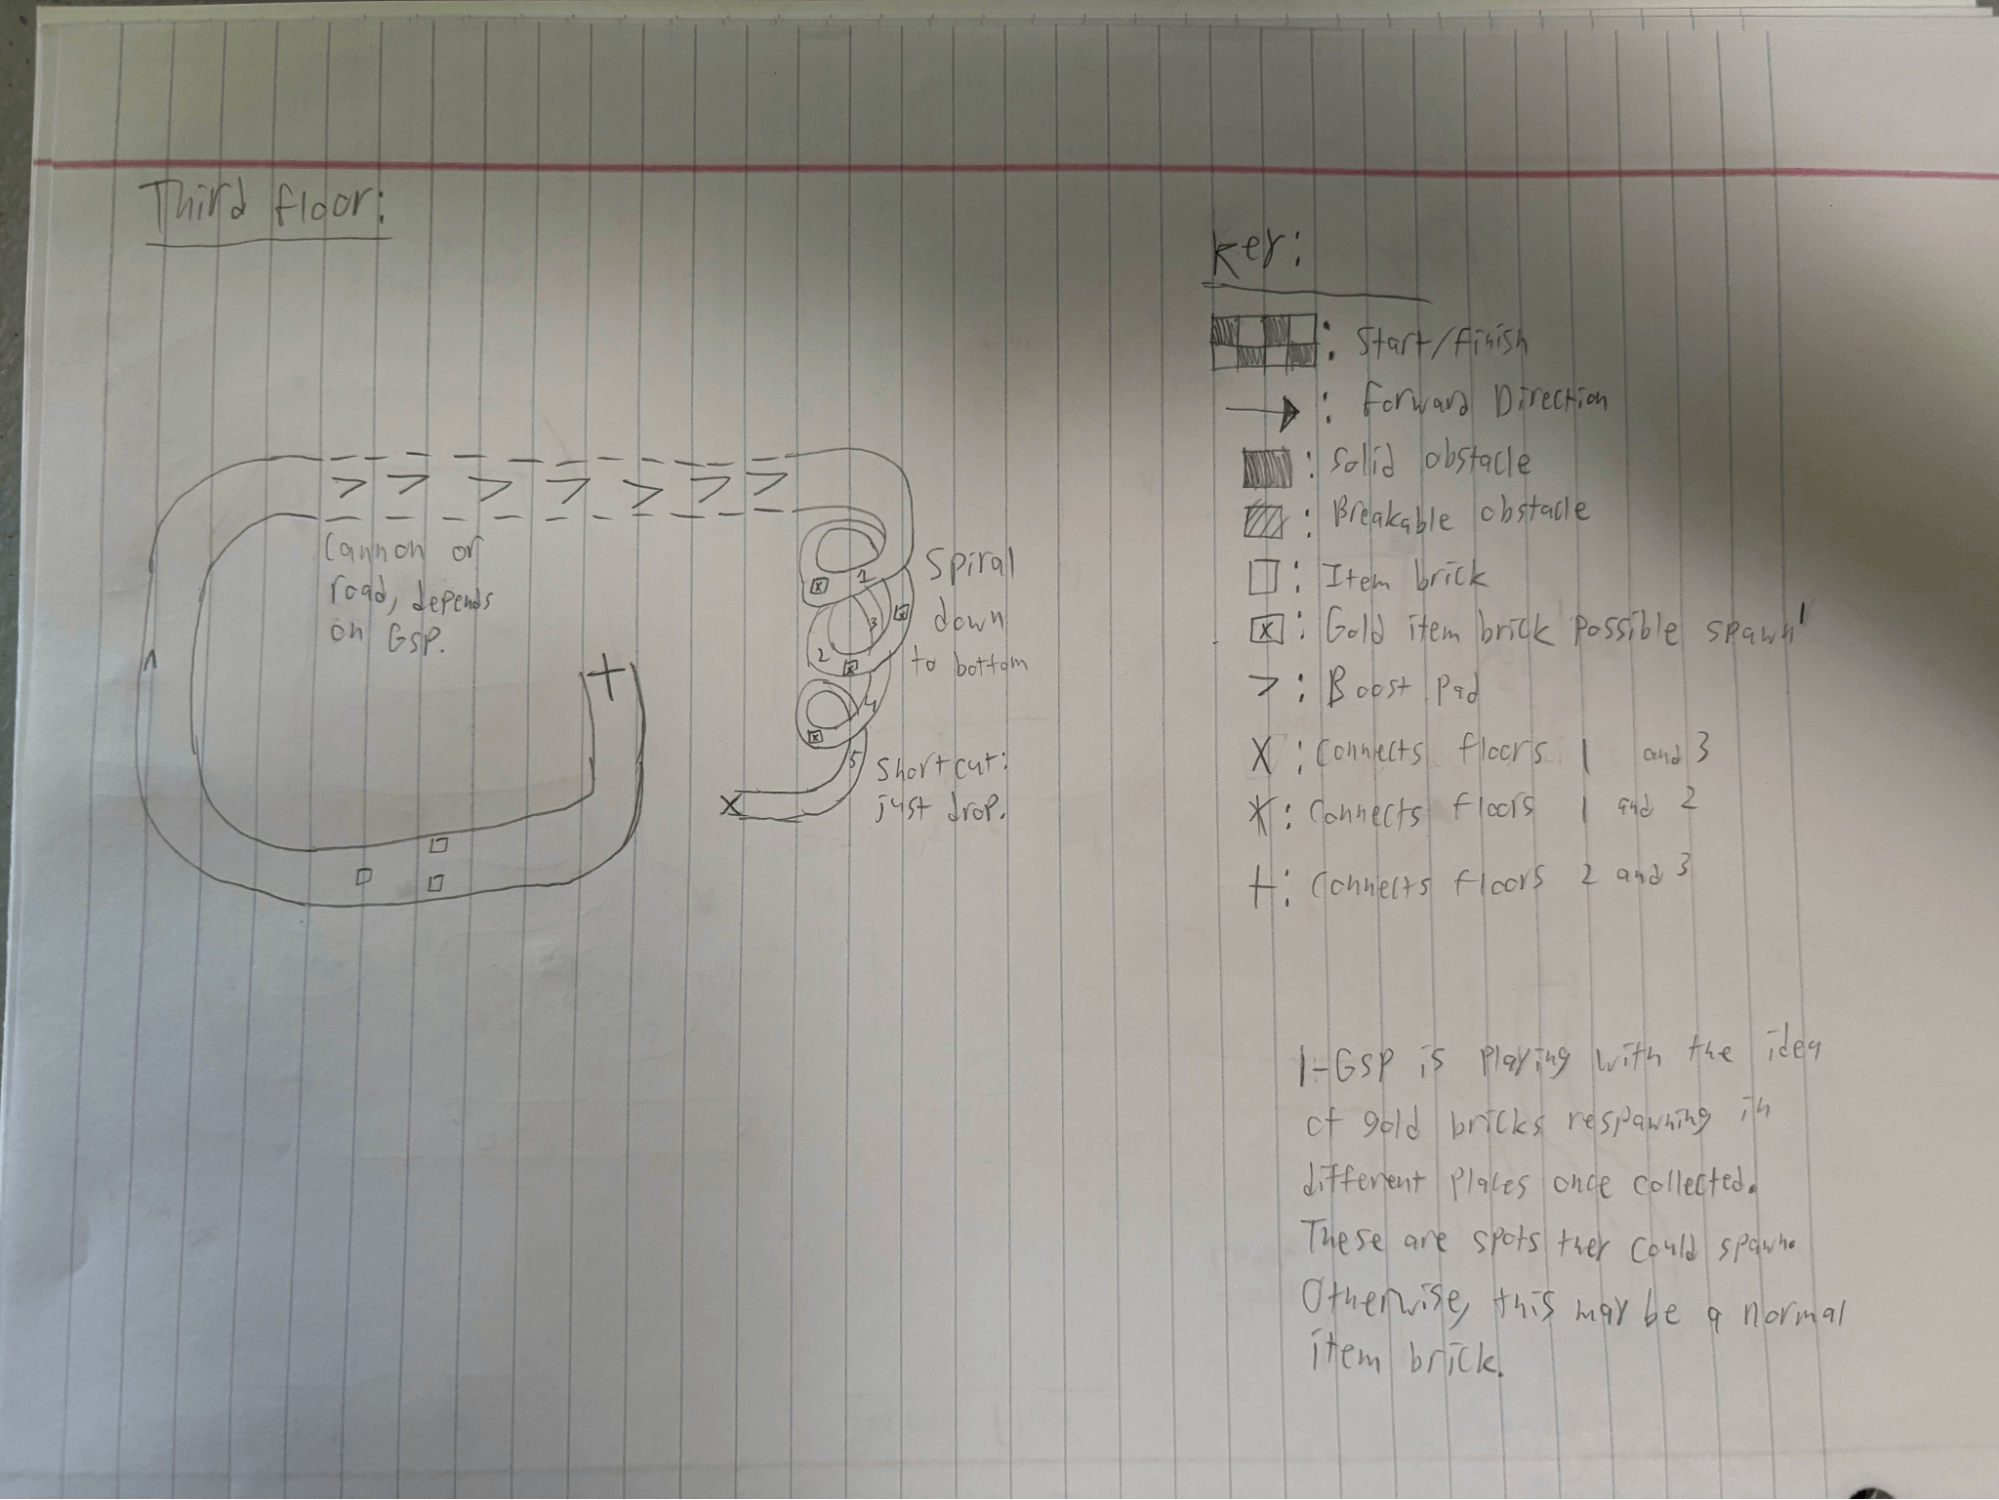 Third floor:
Cannon or
road, depends
on GSP.
Spiral
down
to bottom
1
2
3
4
5
Shortcut:
just drop.
X
+
Key:
: Start/Finish
: Forward Direction
: Solid obstacle
: Breakable obstacle
: Item brick
: Gold item brick possible spawn¹
> : Boost pad
X : Connects floors 1 and 3
: Connects floors 1 and 2
+ : Connects floors 2 and 3
1-GSP is playing with the idea
of gold bricks respawning in
different places once collected.
These are spots they could spawn.
Otherwise, this may be a normal
item brick.